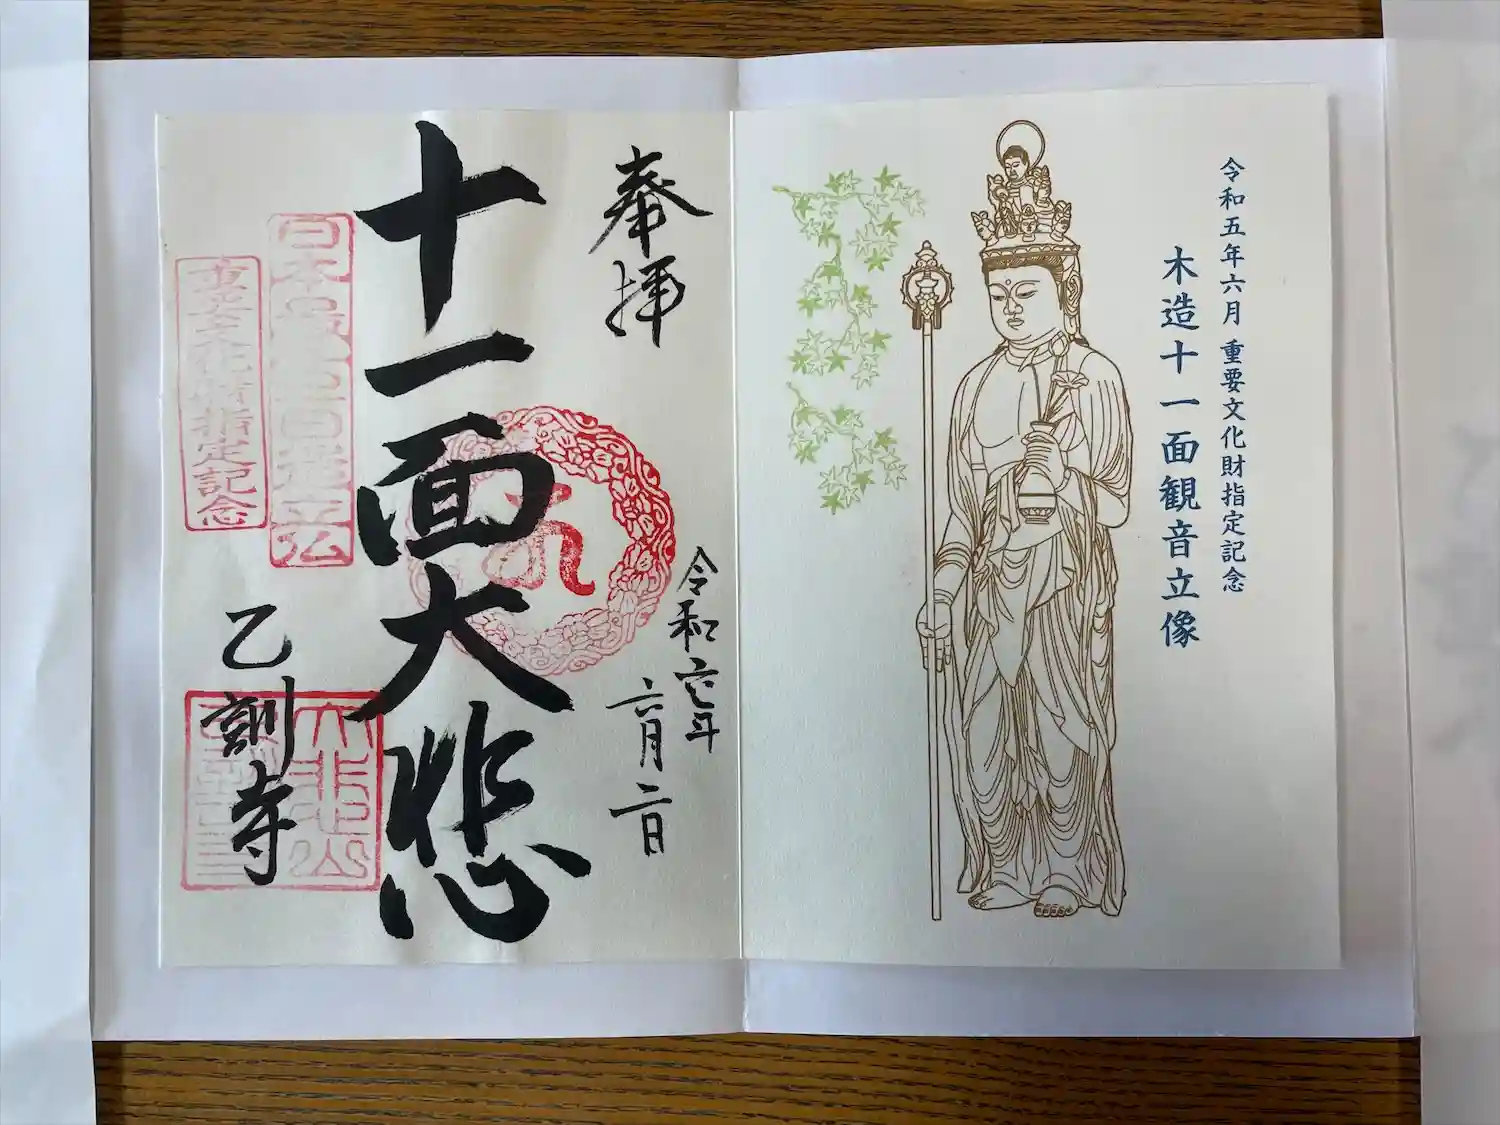 令和五年六月 重要文化財指定記念
木造十一面観音立像
奉拝
令和
年
六月二日
十一面大悲
重要文化財指定記念
乙訓寺